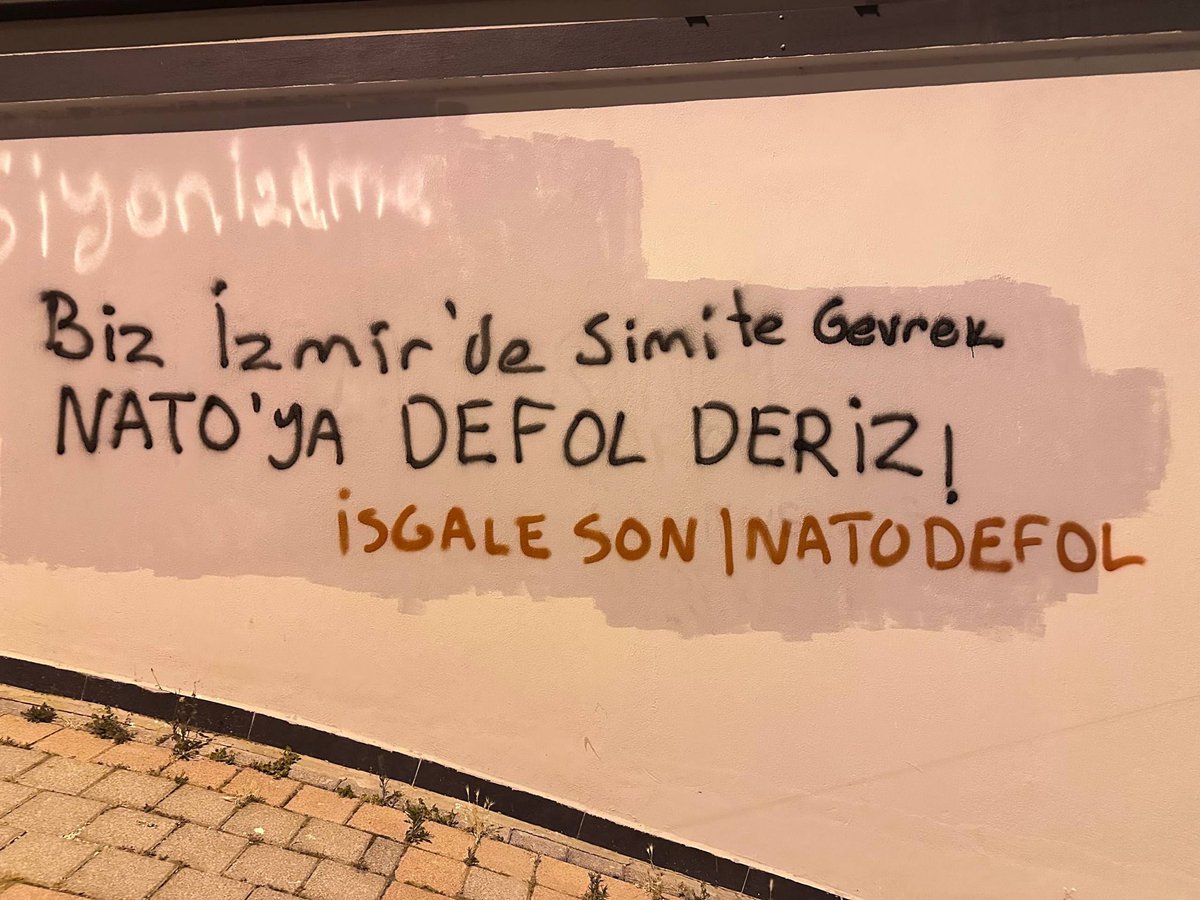 Siyonizdma
Biz İzmir'de Simite Gevrek
NATO'YA DEFOL DERİZ!
İSGALE SON | NATO DEFOL